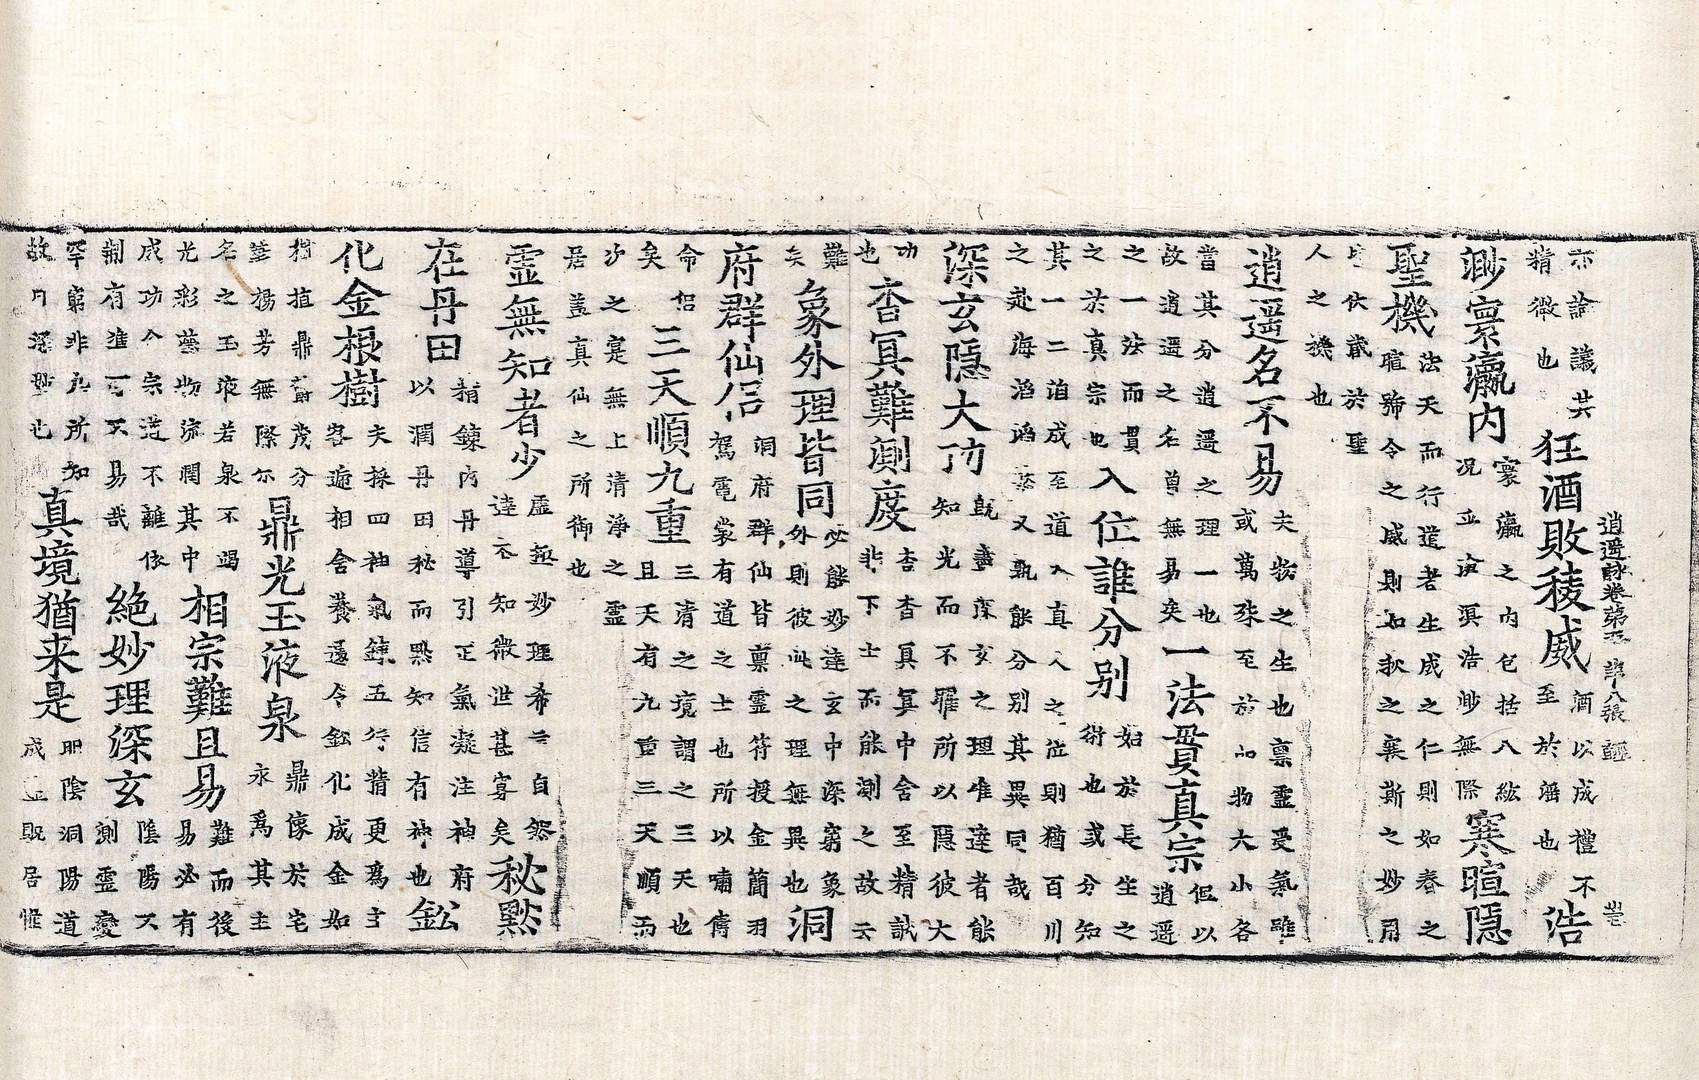 逍遥詠卷第五 第十八張
示論議其精微也狂酒敗稜威酒以成禮不至於也浩
渺寰瀛内寰瀛之内包括八紘况並滄溟浩渺無際寒暄隱
聖機法天而行道者生成之仁則如春之暄號令之威則如秋之衰斯之妙用
皆伏藏於聖人之機也
逍遥名不易夫物之生也禀靈受氣雖或萬殊至於品物大小各
當其分逍遥之理一也故逍遥之名曽無易矣一法貫真宗但以逍遥
之一法而貫之於真宗也入位誰分别始於長生之術也或分知
其一二洎成至道入真人之位則猶百川之赴海滔滔又孰能分别其異同哉
深玄隱大功既盡深玄之理唯達者能知光而不耀所以隱彼大
功也杳冥難測度杳杳冥冥中含至精誠非下士而能測之故云
難矣象外理皆同必能妙達玄中深窮象外則彼此之理無異也洞
府群仙侣洞府群仙皆禀靈符授金簡羽駕電裳有道之士也所以嘯儔
命侣矣三天順九重三清之境謂之三天也且天有九重三天順而
少之寔無上清淨之靈居盖真仙之所御也
靈無知者少虚無妙理希言自然達不知微泄甚寡矣秘㸃
在丹田精鍊内丹導引正氣凝注神府以潤丹田秘而㸃知信有神也鈆
化金根樹夫採四神氣鍊五行精更為主客遞相含養還令鈆化成金如
樹植鼎茂分莖楊芳無際尔鼎光玉液泉鼎傢於宅永為其主
名之玉液若泉不竭光彩流潤其中相宗難且易難而後易必有
成功今宗道不離依有進可不易哉絶妙理深玄陰陽不測靈變
罕窮非凡所知故曰深妙也真境猶来是明陰洞陽道成既居惟